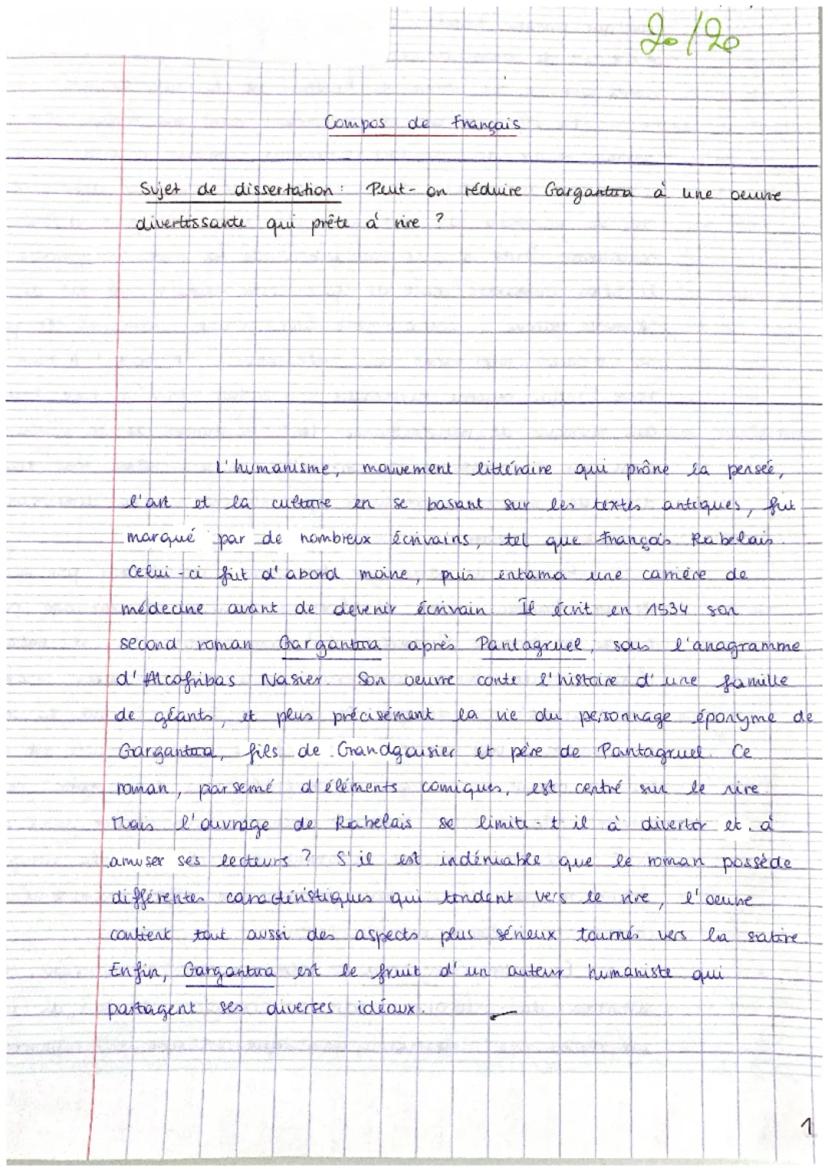 20/20
Compos de Français
Sujet de dissertation : Peut-on réduire Gargantua à une oeuvre
divertissante qui prête à rire ?
L'humanisme, mouvement littéraire qui prône la pensée,
l'art et la culture en se basant sur les textes antiques, fut
marqué par de nombreux écrivains, tel que François Rabelais.
Celui-ci fut d'abord moine, puis entama une carrière de
médecine avant de devenir écrivain. Il écrit en 1534 son
second roman Gargantua après Pantagruel, sous l'anagramme
d'Alcofribas Nasier. Son oeuvre conte l'histoire d'une famille
de géants, et plus précisément la vie du personnage éponyme de
Gargantua, fils de Grandgousier et père de Pantagruel. Ce
roman, parsemé d'éléments comiques, est centré sur le rire.
Mais l'ouvrage de Rabelais se limite-t il à divertir et à
amuser ses lecteurs ? S'il est indéniable que le roman possède
différentes caractéristiques qui tendent vers le rire, l'oeuvre
contient tout aussi des aspects plus sérieux tournés vers la satire.
Enfin, Gargantua est le fruit d'un auteur humaniste qui
partagent ses diverses idéaux.
1